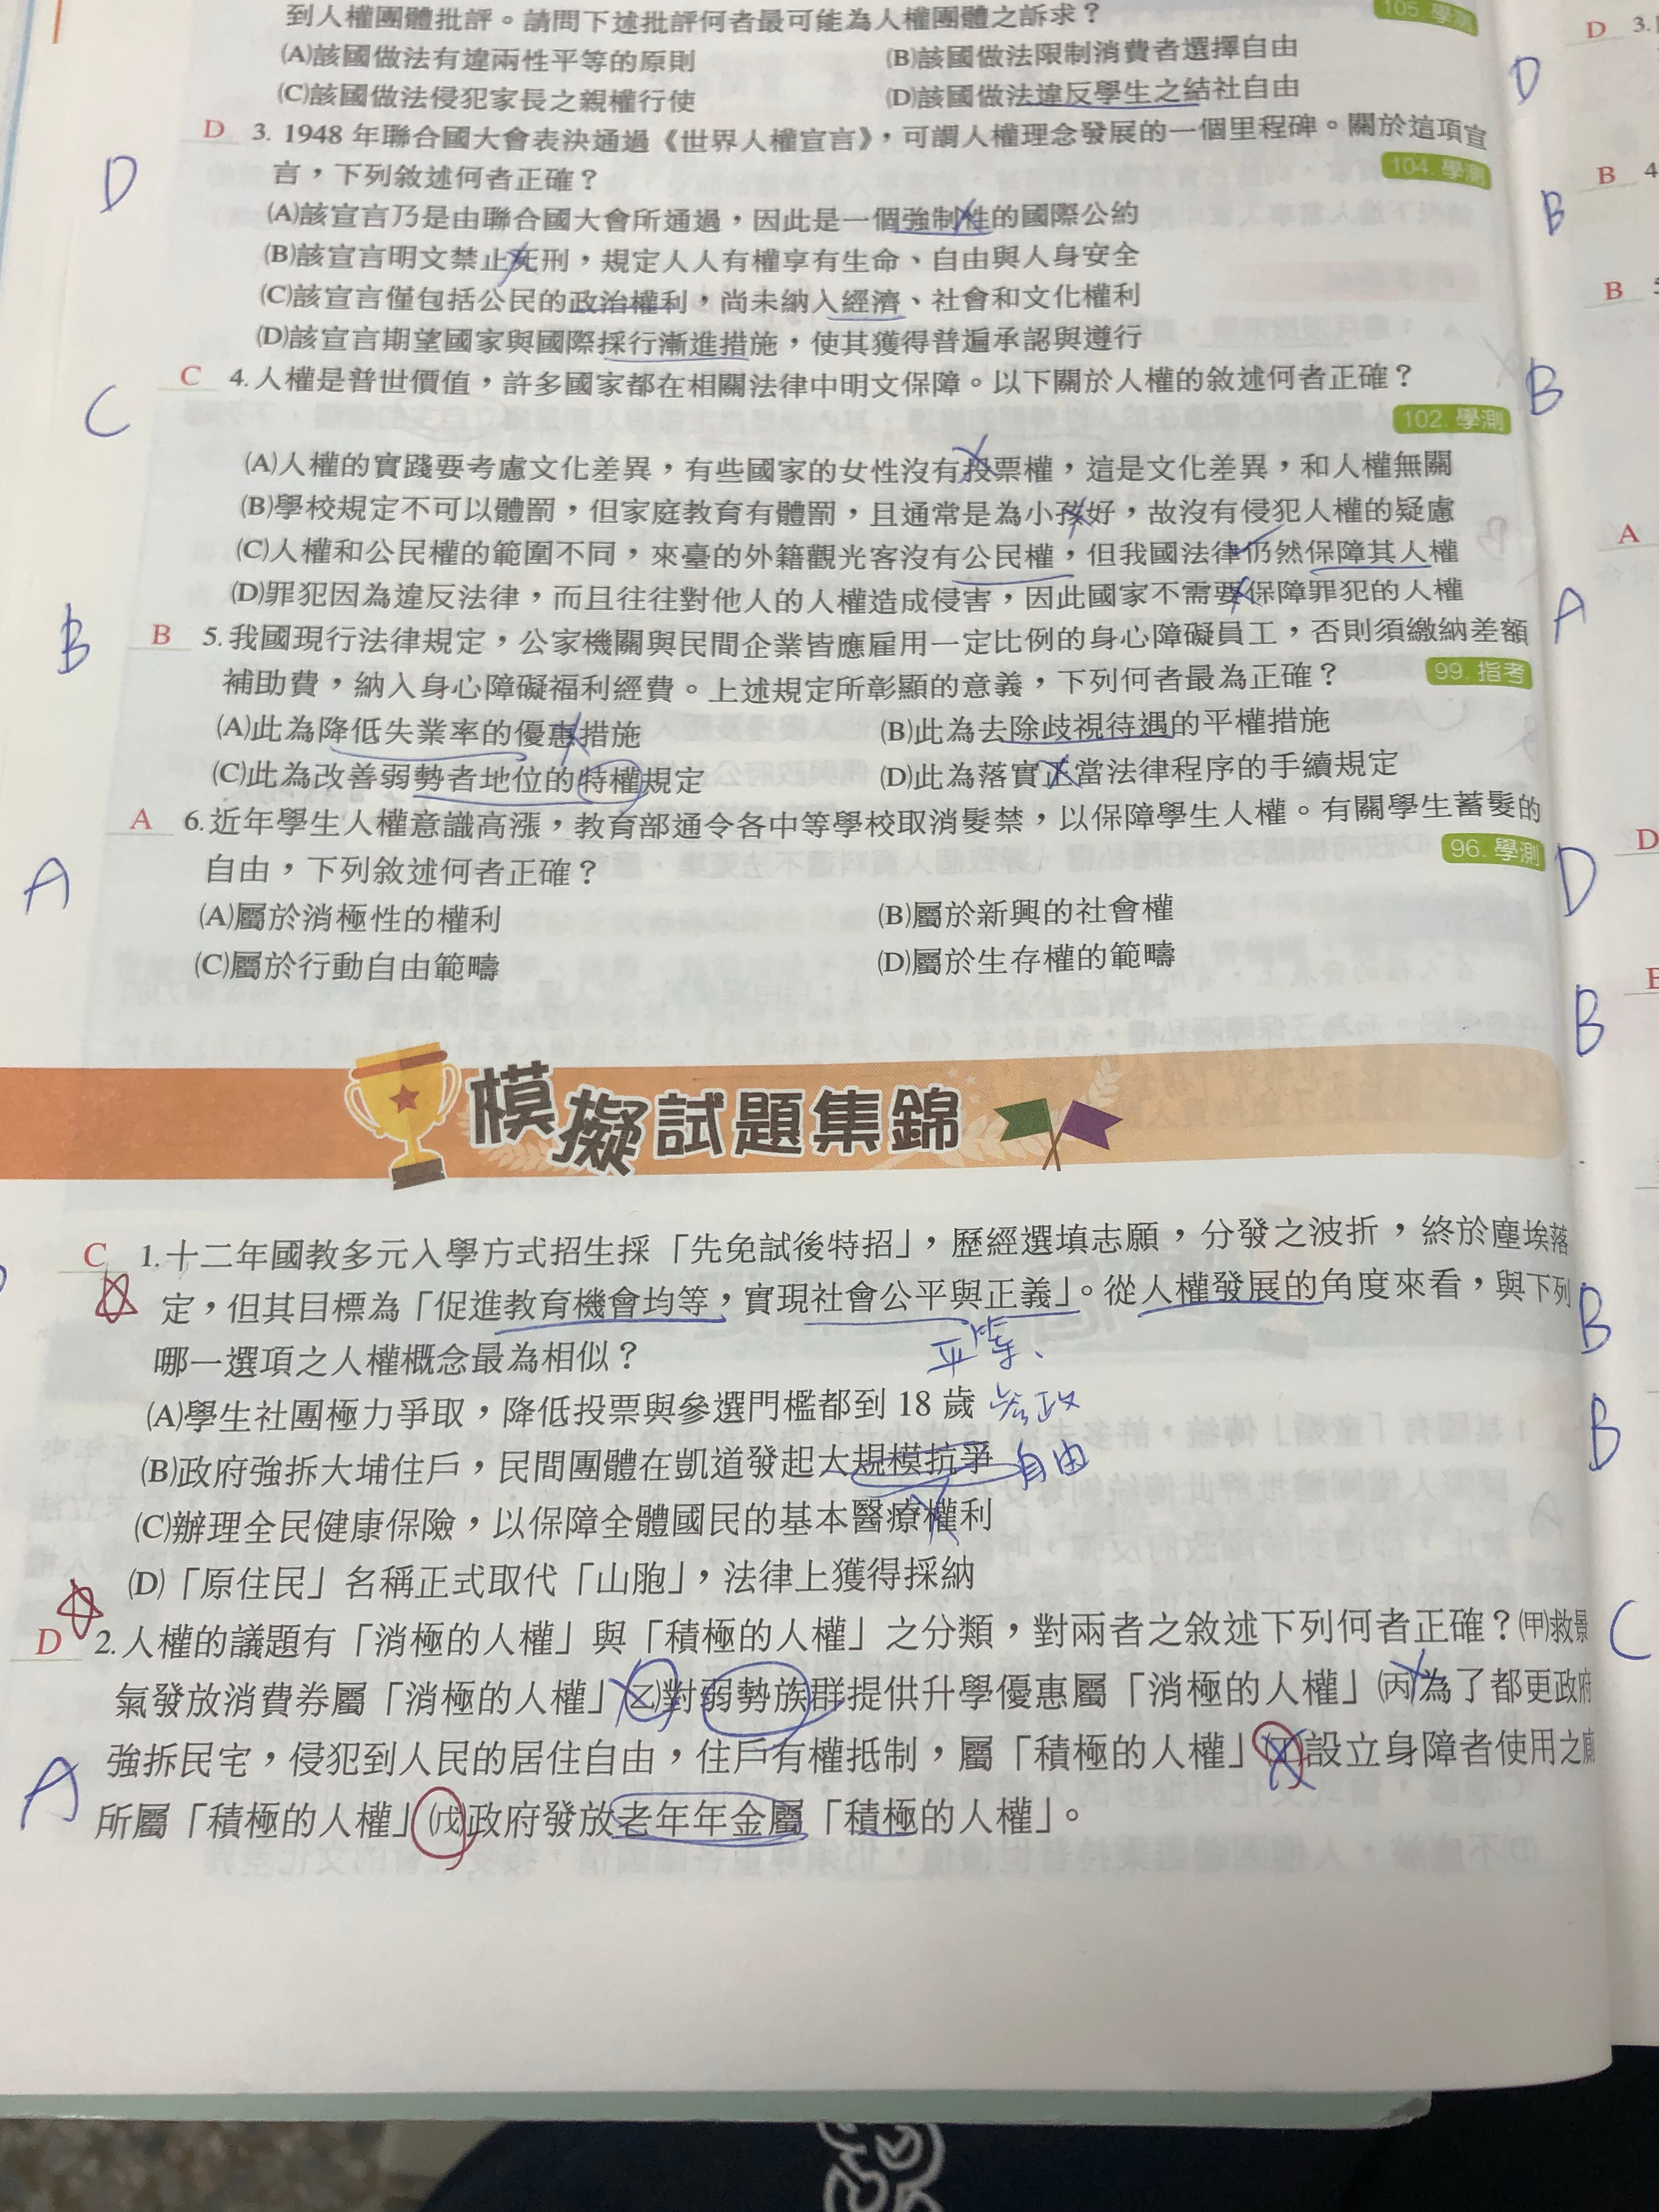 到人權團體批評。請問下述批評何者最可能為人權團體之訴求？
105. 學測
(A)該國做法有違兩性平等的原則
(B)該國做法限制消費者選擇自由
(C)該國做法侵犯家長之親權行使
(D)該國做法違反學生之結社自由
D 3. 1948 年聯合國大會表決通過《世界人權宣言》，可謂人權理念發展的一個里程碑。關於這項宣
D
言，下列敘述何者正確？
104. 學測
(A)該宣言乃是由聯合國大會所通過，因此是一個強制性的國際公約
(B)該宣言明文禁止死刑，規定人人有權享有生命、自由與人身安全
(C)該宣言僅包括公民的政治權利，尚未納入經濟、社會和文化權利
(D)該宣言期望國家與國際採行漸進措施，使其獲得普遍承認與遵行
C 4. 人權是普世價值，許多國家都在相關法律中明文保障。以下關於人權的敘述何者正確？
C
102. 學測
(A)人權的實踐要考慮文化差異，有些國家的女性沒有投票權，這是文化差異，和人權無關
(B)學校規定不可以體罰，但家庭教育有體罰，且通常是為小孩好，故沒有侵犯人權的疑慮
(C)人權和公民權的範圍不同，來臺的外籍觀光客沒有公民權，但我國法律仍然保障其人權
(D)罪犯因為違反法律，而且往往對他人的人權造成侵害，因此國家不需要保障罪犯的人權
B 5. 我國現行法律規定，公家機關與民間企業皆應雇用一定比例的身心障礙員工，否則須繳納差額
B
補助費，納入身心障礙福利經費。上述規定所彰顯的意義，下列何者最為正確？
99. 指考
(A)此為降低失業率的優惠措施
(B)此為去除歧視待遇的平權措施
(C)此為改善弱勢者地位的特權規定
(D)此為落實正當法律程序的手續規定
A 6. 近年學生人權意識高漲，教育部通令各中等學校取消髮禁，以保障學生人權。有關學生蓄髮的
A
自由，下列敘述何者正確？
96. 學測
(A)屬於消極性的權利
(B)屬於新興的社會權
(C)屬於行動自由範疇
(D)屬於生存權的範疇
模擬試題集錦
C 1. 十二年國教多元入學方式招生採「先免試後特招」，歷經選填志願，分發之波折，終於塵埃落
定，但其目標為「促進教育機會均等，實現社會公平與正義」。從人權發展的角度來看，與下列
平等、
哪一選項之人權概念最為相似？
(A)學生社團極力爭取，降低投票與參選門檻都到 18 歲 參政
(B)政府強拆大埔住戶，民間團體在凱道發起大規模抗爭 自由
(C)辦理全民健康保險，以保障全體國民的基本醫療權利
(D)「原住民」名稱正式取代「山胞」，法律上獲得採納
D 2. 人權的議題有「消極的人權」與「積極的人權」之分類，對兩者之敘述下列何者正確？(甲)救景
氣發放消費券屬「消極的人權」(乙)對弱勢族群提供升學優惠屬「消極的人權」(丙)為了都更政府
強拆民宅，侵犯到人民的居住自由，住戶有權抵制，屬「積極的人權」(丁)設立身障者使用之廁
A
所屬「積極的人權」(戊)政府發放老年年金屬「積極的人權」。
D 3.
D
B 4
B
B 5
B
A
A
D
D
B
B
B
C